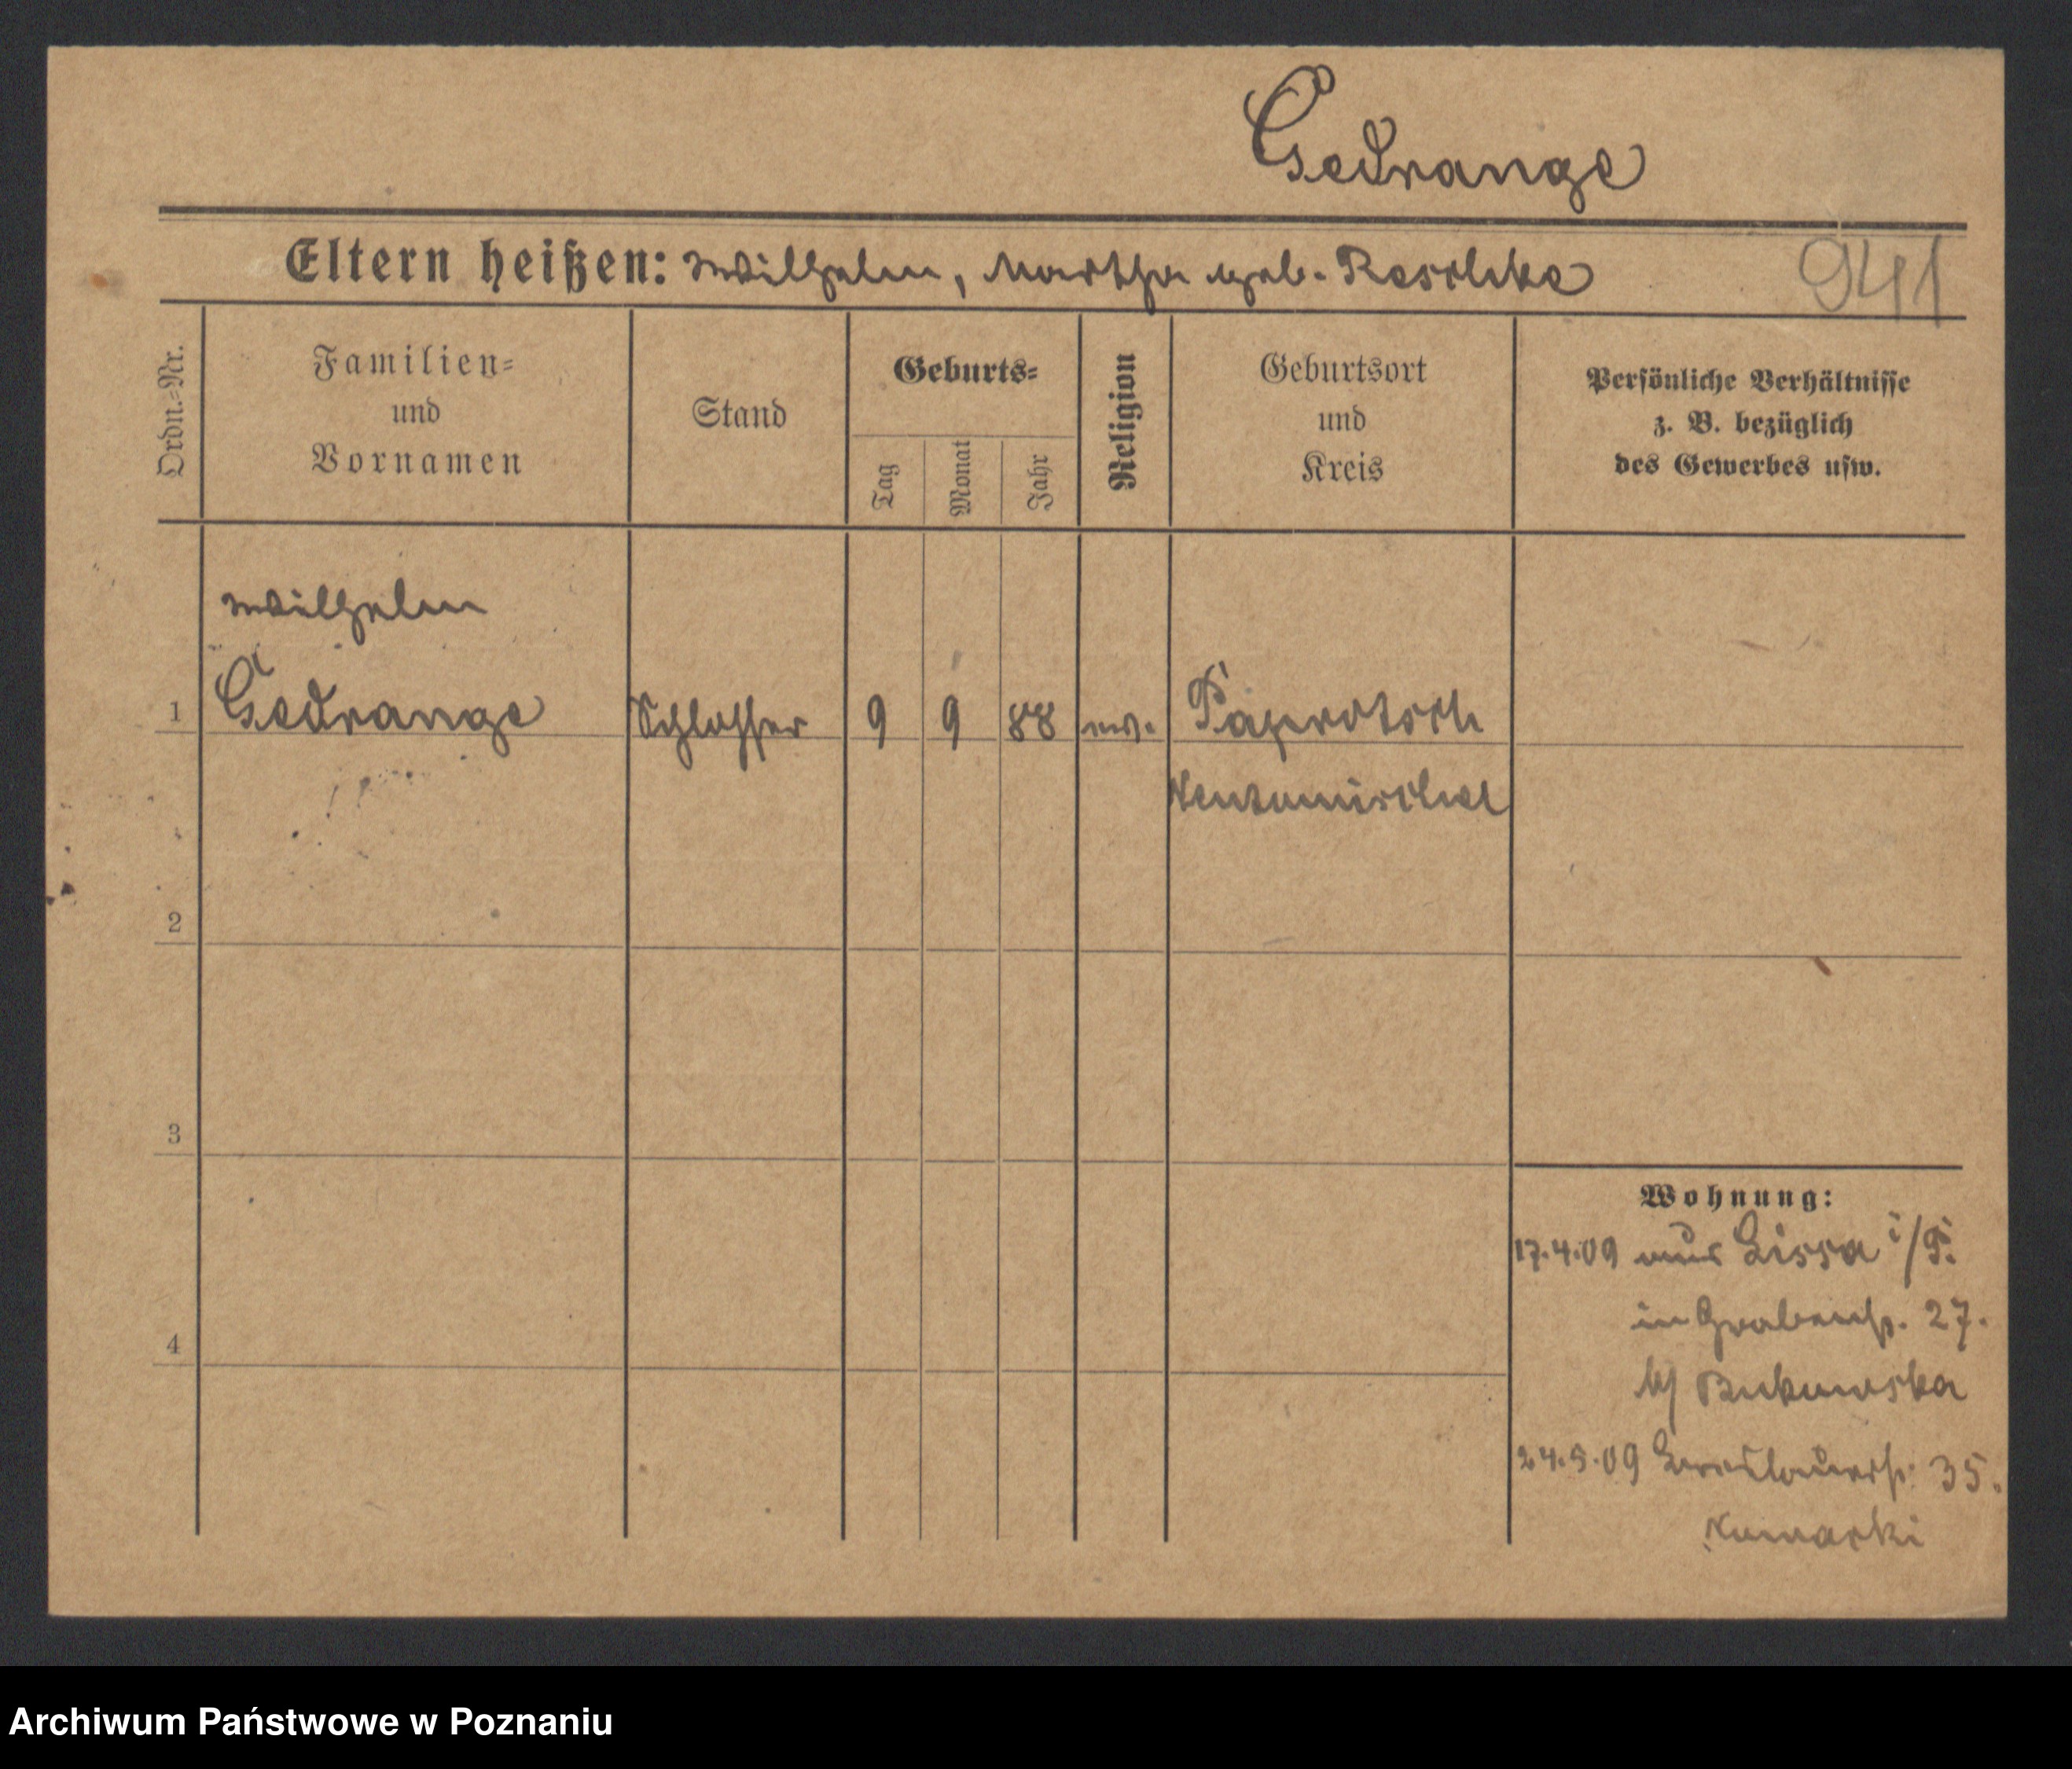 Gedrange
Eltern heißen: Wilhelm, Martha geb. Reschke
941
Ordn.=Nr.
Familien=
und
Vornamen
Stand
Geburts=
Tag
Monat
Jahr
Religion
Geburtsort
und
Kreis
Persönliche Verhältnisse
z. B. bezüglich
des Gewerbes usw.
Wilhelm
1 Gedrange Schlosser 9 9 88 ev. Paprotsch
Neutomischel
2
3
4
Wohnung:
17.4.09 aus Lissa i/P.
in Grabenstr. 27.
b/ Bukowska
24.5.09 Breslauerstr. 35.
Archiwum Państwowe w Poznaniu